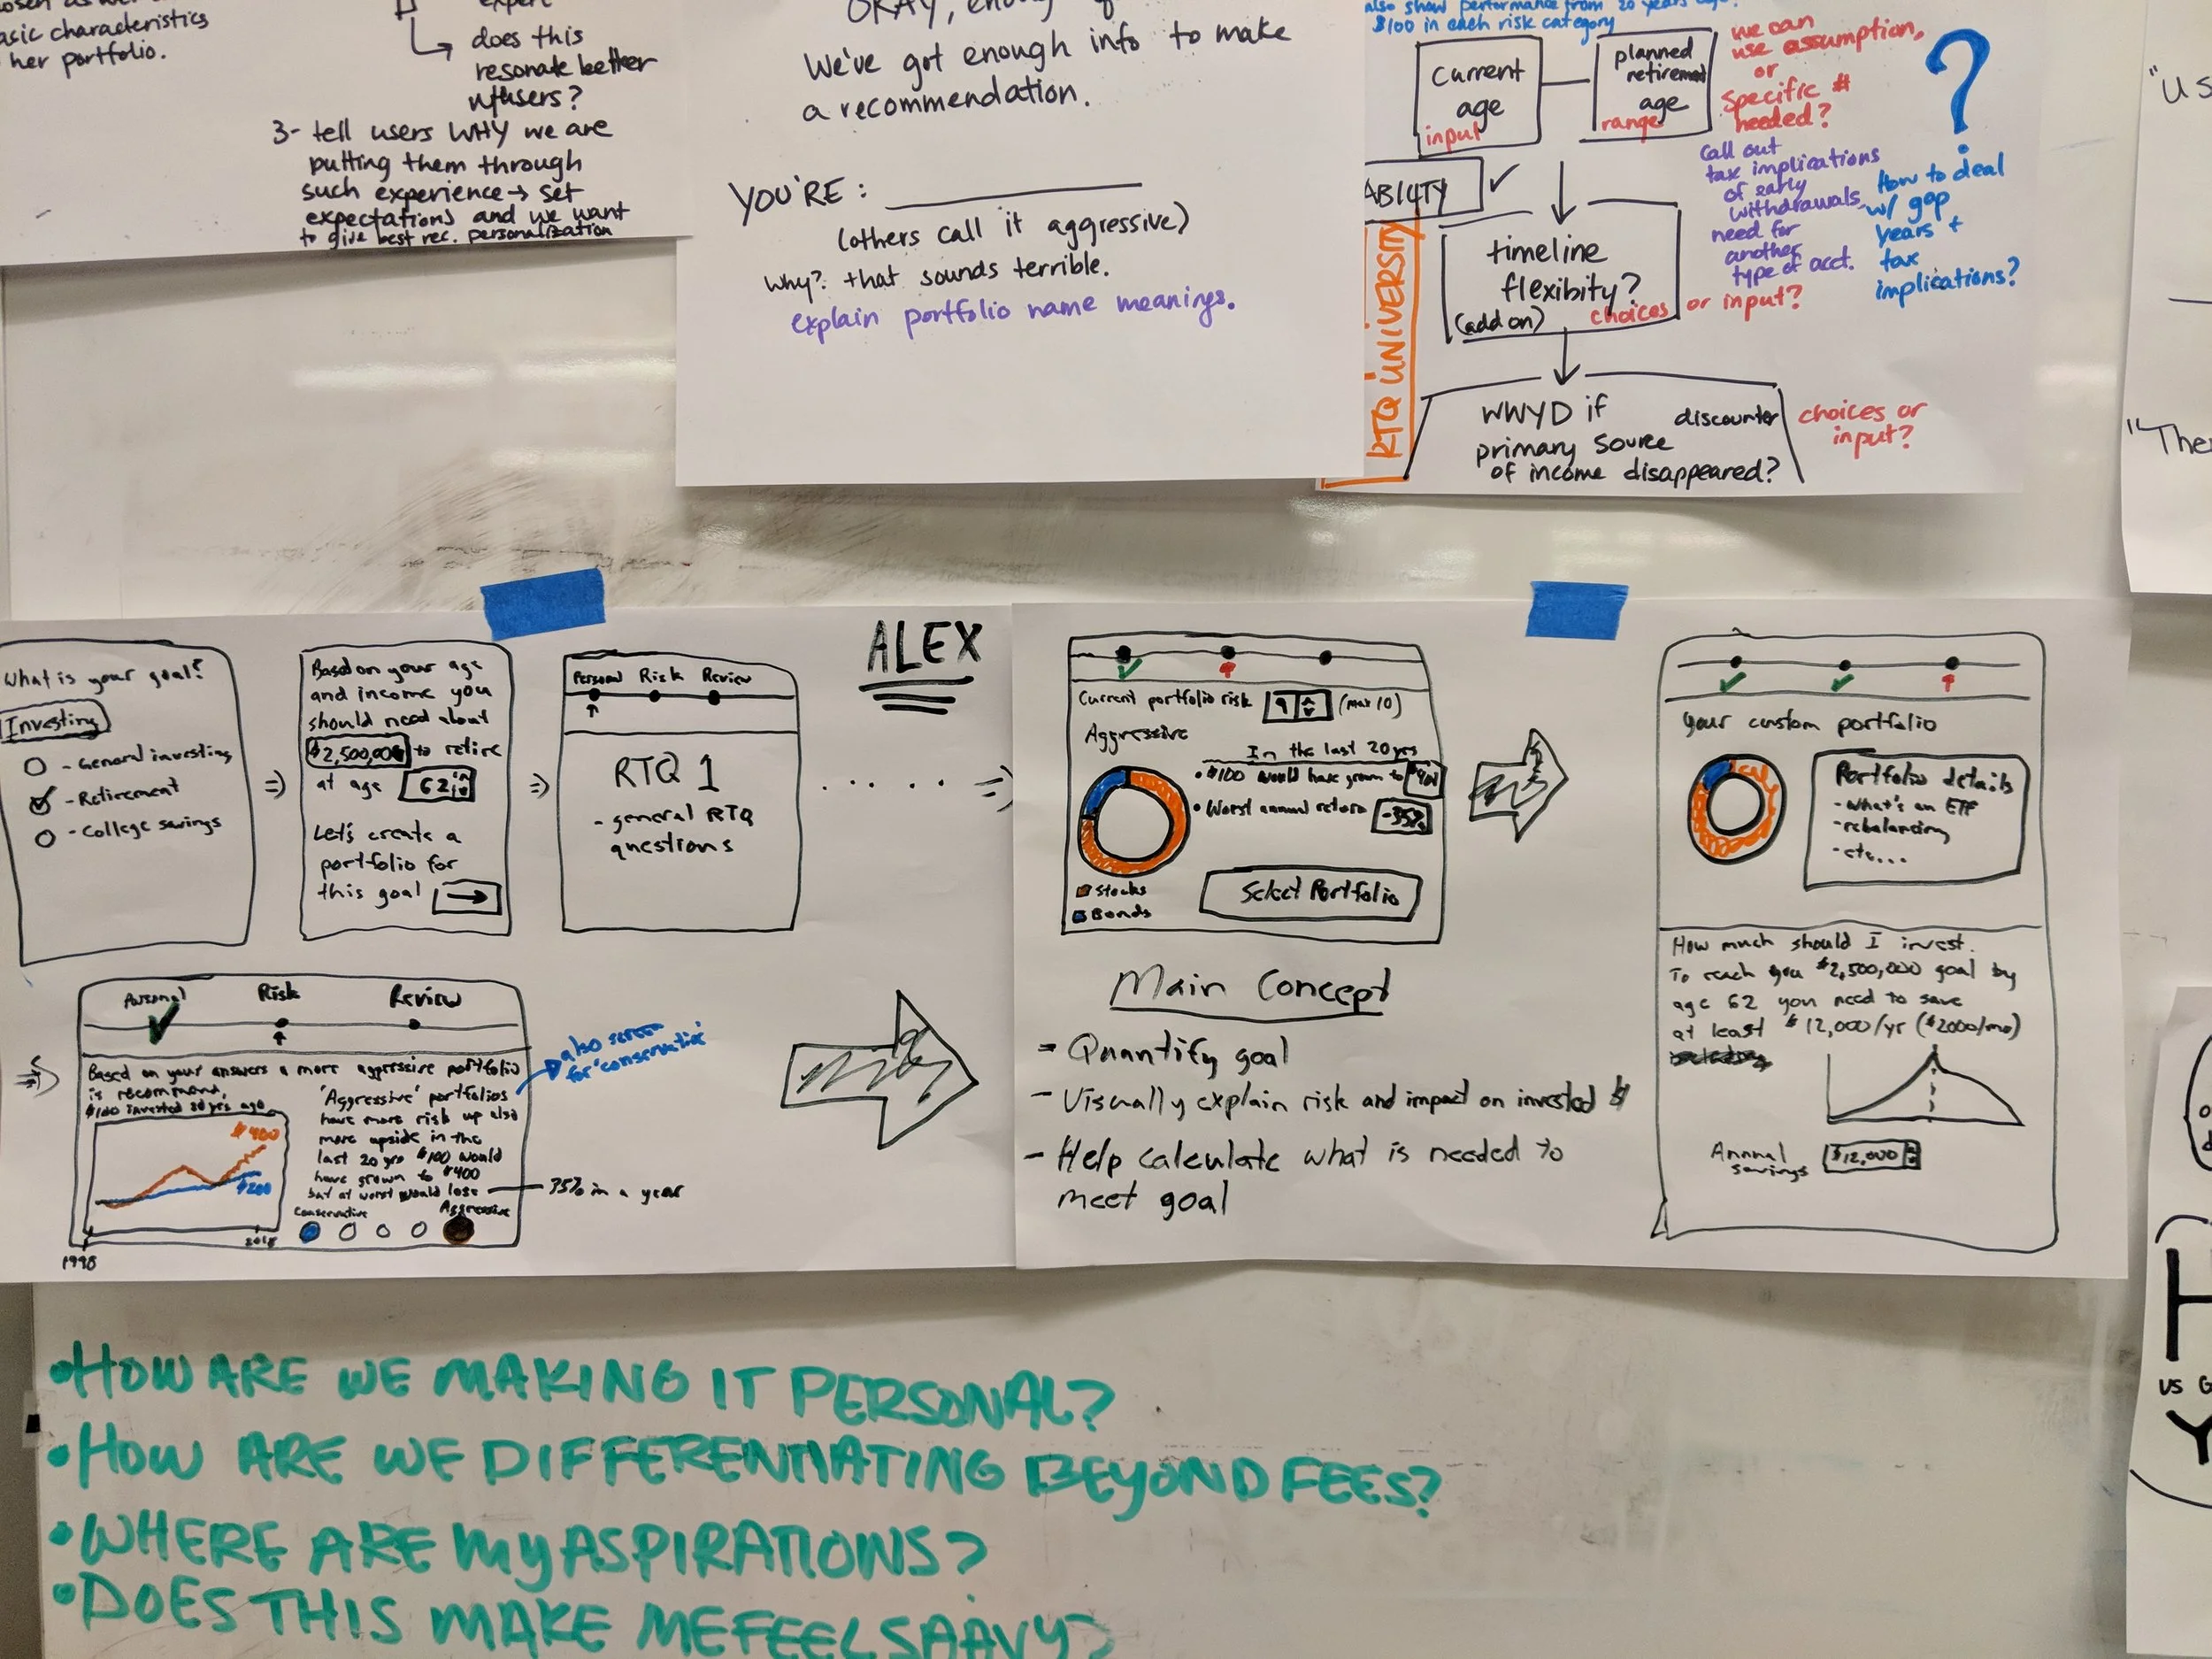 asic characteristics
her portfolio.
expert
does this
resonate better
w/users?
3- tell users WHY we are
putting them through
such experience → set
expectations and we want
to give best rec. personalization
OKAY, enough
We've got enough info to make
a recommendation.
YOU'RE:
(others call it aggressive)
Why? that sounds terrible.
explain portfolio name meanings.
also show performance from 20 years ago.
$100 in each risk category
current
age
input
planned
retirement
age
range
we can
use assumption,
or
specific #
needed?
?
call out
tax implications
of early
withdrawals,
need for
another
type of acct.
How to deal
w/ gap
years +
tax
implications?
ABILITY ✓
RTQ UNIVERSITY
timeline
flexibity?
(add on)
choices or input?
WWYD if
primary source
of income disappeared?
discounter
choices or
input?
"US
"The
What is your goal?
Investing
- General investing
- Retirement
- College savings
Based on your age
and income you
should need about
$2,500,000 to retire
at age 62
Let's create a
portfolio for
this goal →
Personal Risk Review
RTQ 1
- general RTQ
questions
ALEX
Personal Risk Review
Based on your answers a more aggressive portfolio
is recommend.
$100 invested 20 yrs ago
$400
$200
1998
2018
'Aggressive' portfolios
have more risk up also
more upside in the
last 20 yrs $100 would
have grown to $400
but at worst would lose — 35% in a year
Conservative
Aggressive
also screen
for 'conservative'
Current portfolio risk 9 (max 10)
Aggressive
In the last 20 yrs
• $100 would have grown to $401
• Worst annual return -35%
Stocks
Bonds
Select Portfolio
Main Concept
- Quantify goal
- Visually explain risk and impact on invested $
- Help calculate what is needed to
meet goal
Your custom portfolio
Portfolio details
- What's an ETF
- rebalancing
- etc...
How much should I invest.
To reach you $2,500,000 goal by
age 62 you need to save
at least $12,000/yr ($2000/mo)
Annual
savings
$12,000
• HOW ARE WE MAKING IT PERSONAL?
• HOW ARE WE DIFFERENTIATING BEYOND FEES?
• WHERE ARE MY ASPIRATIONS?
• DOES THIS MAKE ME FEEL SAAVY?
H
US G
Y